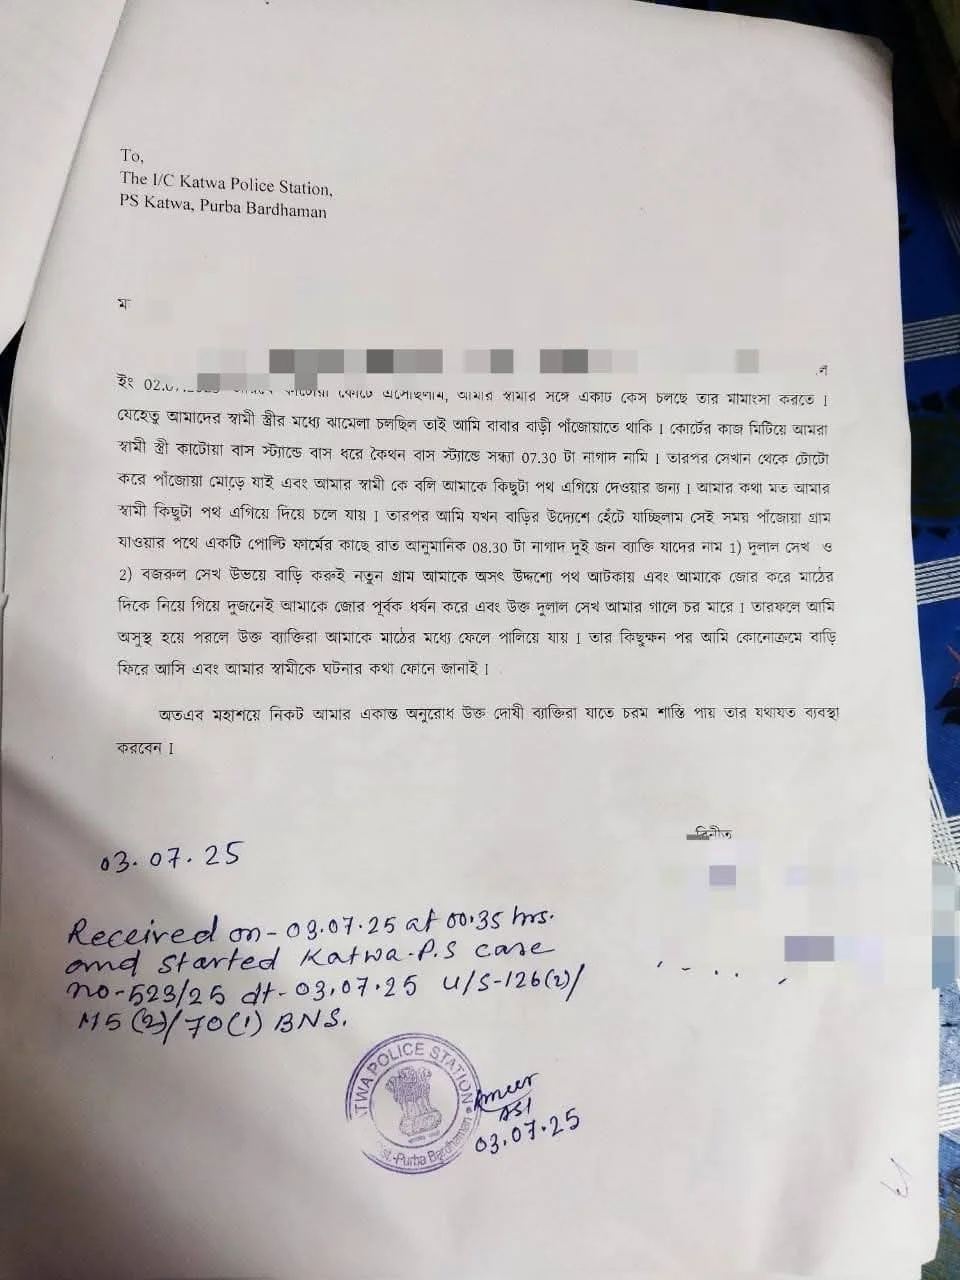 To,
The I/C Katwa Police Station,
PS Katwa, Purba Bardhaman
ইং 02.07. কাটোয়া কোর্টে এসেছিলাম, আমার স্বামীর সঙ্গে একটি কেস চলছে তার মীমাংসা করতে ।
যেহেতু আমাদের স্বামী স্ত্রীর মধ্যে ঝামেলা চলছিল তাই আমি বাবার বাড়ী পাঁজোয়াতে থাকি । কোর্টের কাজ মিটিয়ে আমরা
স্বামী স্ত্রী কাটোয়া বাস স্ট্যান্ডে বাস ধরে কৈথন বাস স্ট্যান্ডে সন্ধ্যা 07.30 টা নাগাদ নামি । তারপর সেখান থেকে টোটো
করে পাঁজোয়া মোড়ে যাই এবং আমার স্বামী কে বলি আমাকে কিছুটা পথ এগিয়ে দেওয়ার জন্য । আমার কথা মত আমার
স্বামী কিছুটা পথ এগিয়ে দিয়ে চলে যায় । তারপর আমি যখন বাড়ির উদ্যেশে হেঁটে যাচ্ছিলাম সেই সময় পাঁজোয়া গ্রাম
যাওয়ার পথে একটি পোল্টি ফার্মের কাছে রাত আনুমানিক 08.30 টা নাগাদ দুই জন ব্যাক্তি যাদের নাম 1) দুলাল সেখ ও
2) বজরুল সেখ উভয়ে বাড়ি করুই নতুন গ্রাম আমাকে অসৎ উদ্দশ্যে পথ আটকায় এবং আমাকে জোর করে মাঠের
দিকে নিয়ে গিয়ে দুজনেই আমাকে জোর পূর্বক ধর্ষন করে এবং উক্ত দুলাল সেখ আমার গালে চর মারে । তারফলে আমি
অসুস্থ হয়ে পরলে উক্ত ব্যাক্তিরা আমাকে মাঠের মধ্যে ফেলে পালিয়ে যায় । তার কিছুক্ষন পর আমি কোনোক্রমে বাড়ি
ফিরে আসি এবং আমার স্বামীকে ঘটনার কথা ফোনে জানাই ।
অতএব মহাশয়ে নিকট আমার একান্ত অনুরোধ উক্ত দোষী ব্যাক্তিরা যাতে চরম শাস্তি পায় তার যথাযত ব্যবস্থা
করবেন ।
বিনীত
03.07.25
Received on - 03.07.25 at 00.35 hrs.
and started Katwa P.S case
no-523/25 dt-03.07.25 U/S-126(2)/
115(2)/70(1) BNS.
KATWA POLICE STATION
Dist.-Purba Bardhaman
ASI
03.07.25